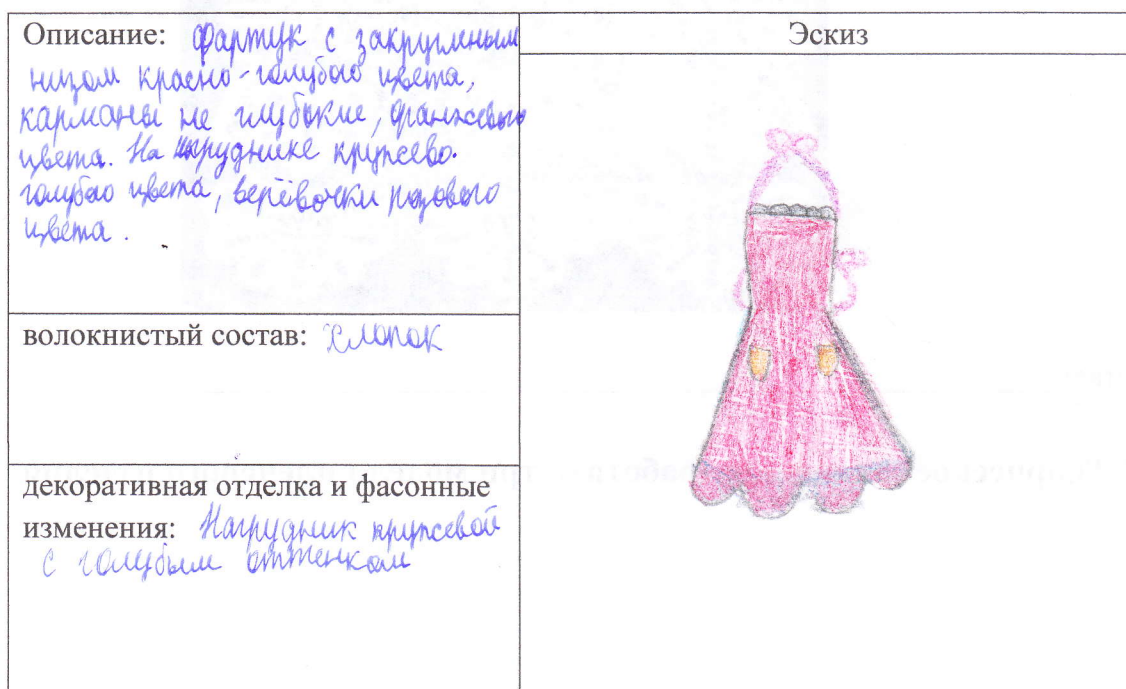 Описание: Фартук с закруглным
низом красно-голубого цвета,
карманы не глубокие, оранжевого
цвета. На нагруднике кружево
голубого цвета, верёвочки розового
цвета.
Эскиз
волокнистый состав: хлопок
декоративная отделка и фасонные
изменения: Нагрудник кружевой
с голубым оттенком